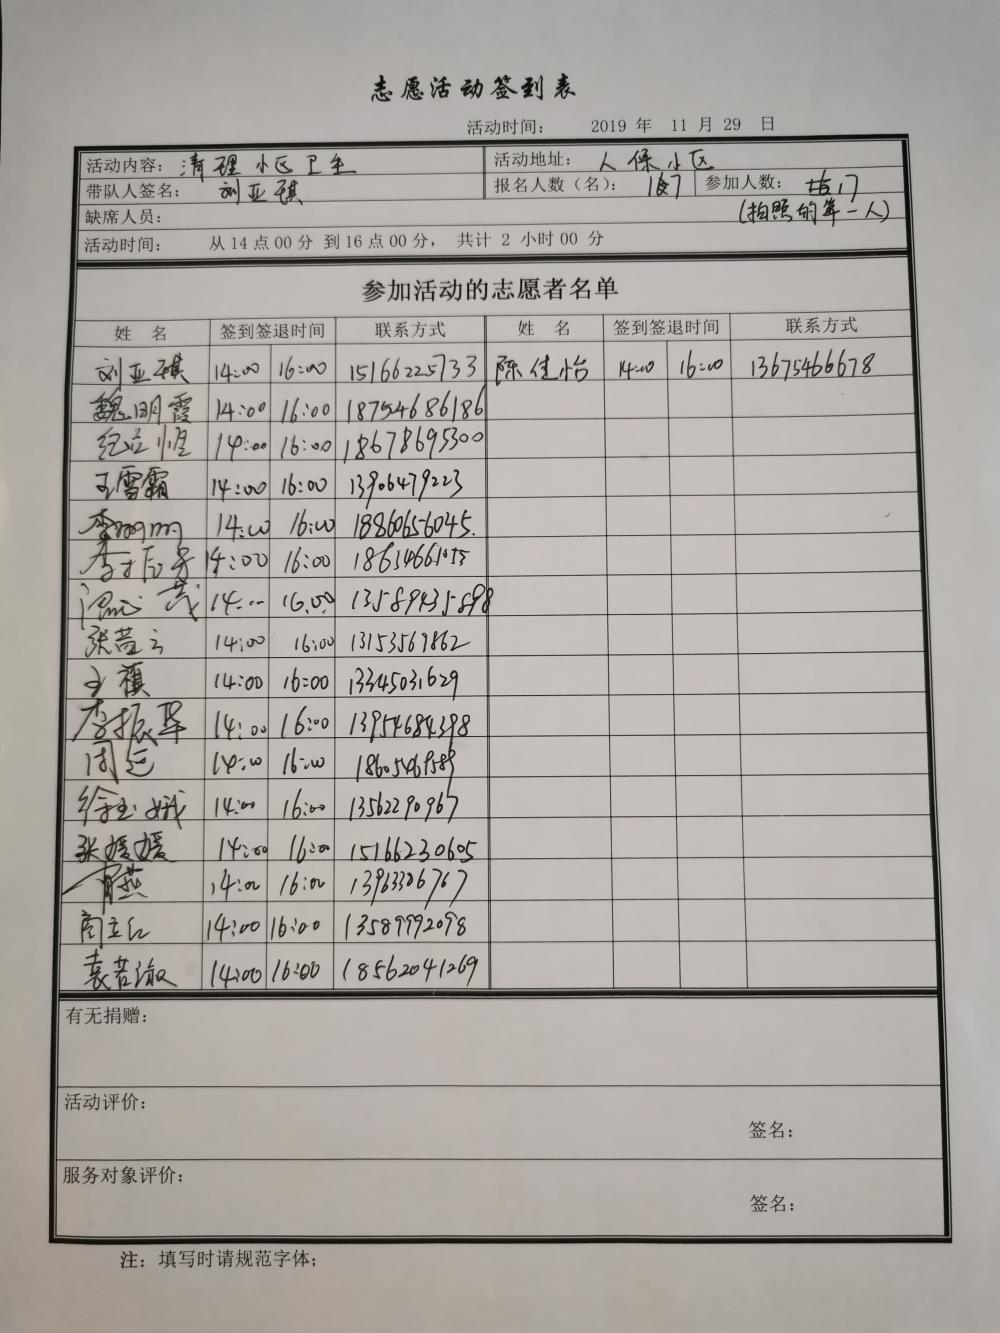 志愿活动签到表
活动时间： 2019 年 11 月 29 日
活动内容：清理小区卫生 活动地址：人保小区
带队人签名：刘亚祺 报名人数（名）：17 参加人数：17
(拍照的算一人)
缺席人员：
活动时间： 从14点00分 到16点00分， 共计 2 小时00 分
参加活动的志愿者名单
姓 名 签到签退时间 联系方式 姓 名 签到签退时间 联系方式
刘亚祺 14:00 16:00 15166225733 陈佳怡 14:00 16:00 13675466678
魏明霞 14:00 16:00 18754686186
14:00 16:00 18678695300
王雪霜 14:00 16:00 13906479223
李 14:00 16:00 18860656045.
李 14:00 16:00
14:00 16:00 13589435898
张莒云 14:00 16:00 13153569862
王祺 14:00 16:00 13345031629
李振华 14:00 16:00 13954684398
周 14:00 16:00
徐玉娥 14:00 16:00 13562290967
张媛媛 14:00 16:00 15166230605
燕 14:00 16:00
商立红 14:00 16:00 13589992098
袁若淑 14:00 16:00 18562041269
有无捐赠：
活动评价：
签名：
服务对象评价：
签名：
注：填写时请规范字体；